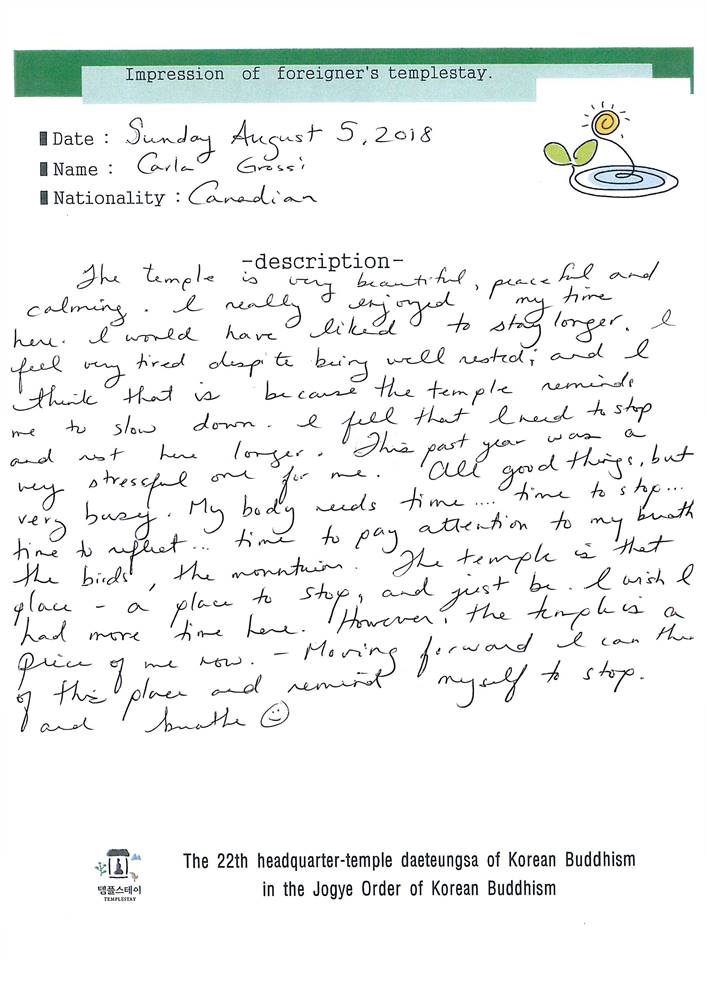 Impression of foreigner's templestay.
Date : Sunday August 5, 2018
Name : Carla Grossi
Nationality : Canadian
-description-
The temple is very beautiful, peaceful and
calming. I really enjoyed my time
here. I would have liked to stay longer. I
feel very tired despite being well rested; and I
think that is because the temple reminds
me to slow down. I fell that I need to stop
and rest here longer. This past year was a
very stressful one for me. All good things, but
very busy. My body needs time .... time to stop...
time to reflect... time to pay attention to my breath
the birds, the mountain. The temple is that
place - a place to stop, and just be. I wish I
had more time here. However, the temple is a
piece of me now. - Moving forward I can
of this place and remind myself to stop.
and breathe
템플스테이
TEMPLESTAY
The 22th headquarter-temple daeteungsa of Korean Buddhism
in the Jogye Order of Korean Buddhism